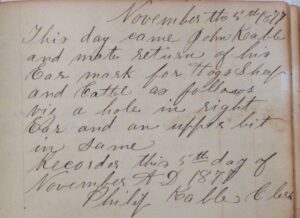 November the 5th 1877
This day came John Kable
and mate return of his
Ear mark for Hogs Shep
and Cattl as follows
viz a hole in right
Ear and an upper bit
in same
Recorded this 5th day of
November A D 1877
Philip Kable Clerk